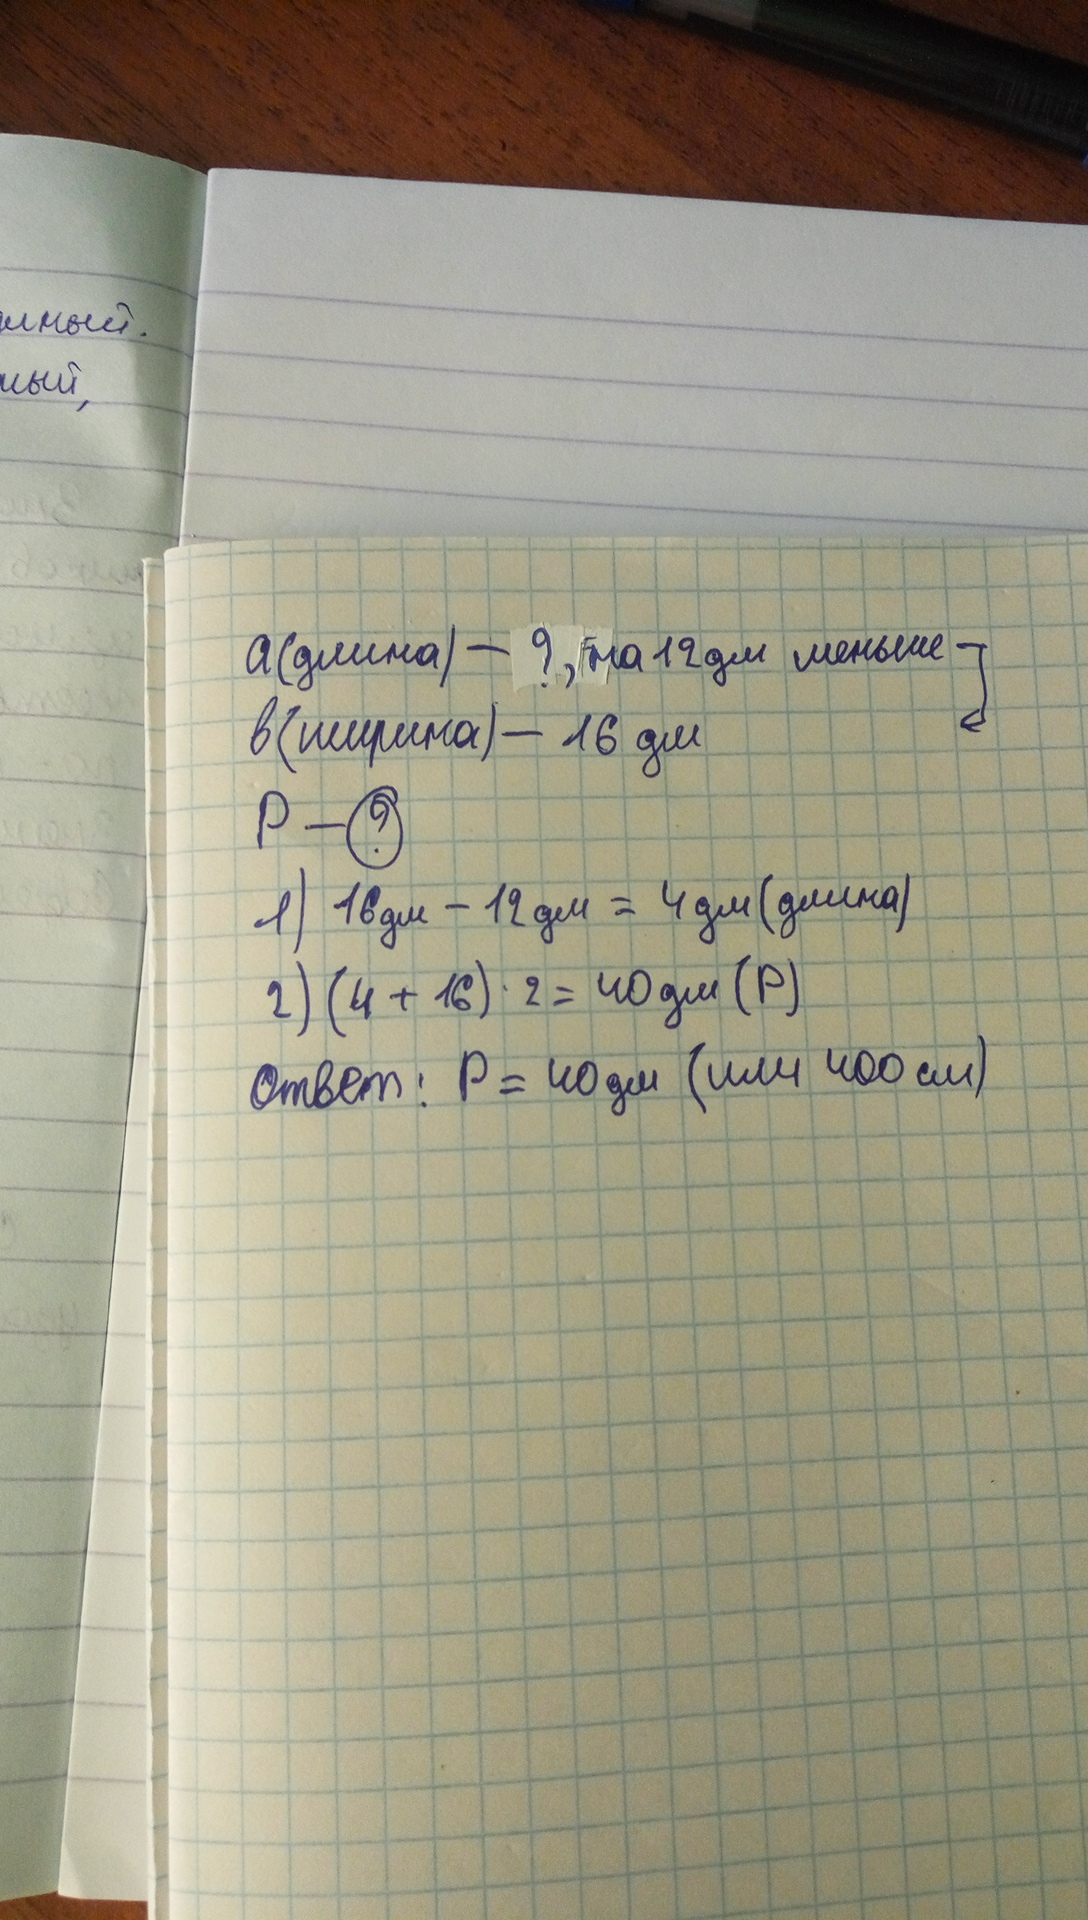 a(длина) – ?, на 12 дм меньше
в(ширина) – 16 дм
P – ?
1) 16 дм – 12 дм = 4 дм (длина)
2) (4 + 16) · 2 = 40 дм (P)
Ответ: P = 40 дм (или 400 см)